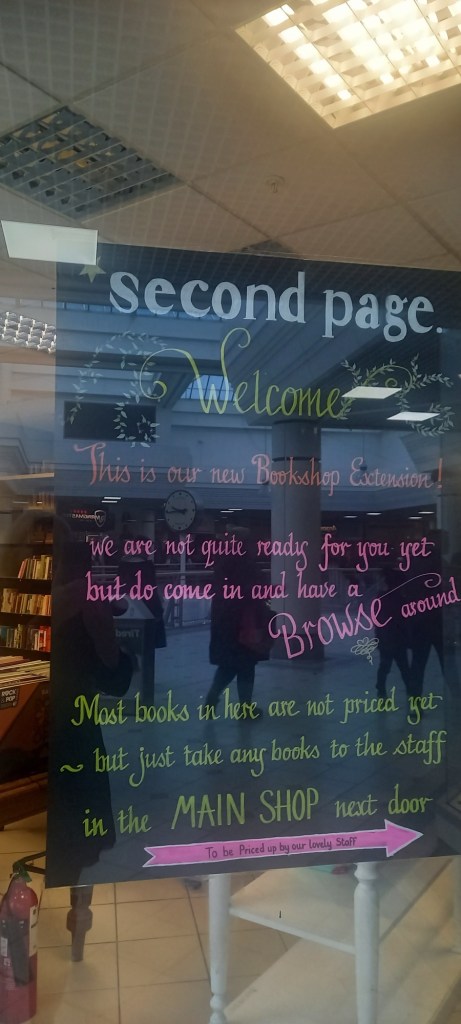 second page.
Welcome
This is our new Bookshop Exctension!
we are not quite ready for you yet
but do come in and have a
Browse around
Most books in here are not priced yet
~ but just take any books to the staff
in the MAIN SHOP next door
To be Priced up by our lovely Staff
ROCK
POP